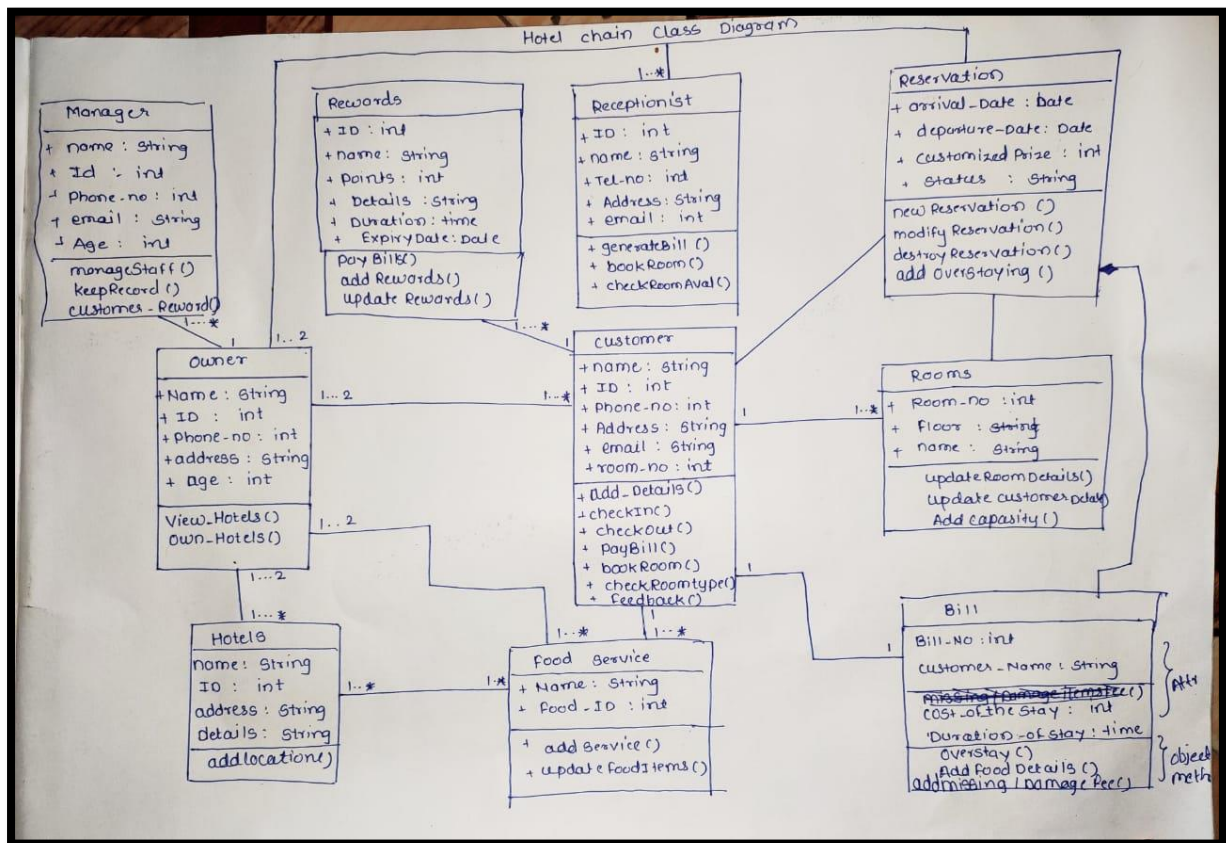 Hotel chain Class Diagram
Manager
+ name : String
+ Id : int
+ Phone-no : int
+ email : String
+ Age : int
manageStaff()
keepRecord()
customer-Reword()
1...*
1
Rewords
+ ID : int
+ name : String
+ Points : int
+ Details : String
+ Duration : time
+ ExpiryDate : Date
pay Bills()
add Rewords()
update Rewords()
1...*
1
1...*
Receptionist
+ ID : int
+ name : String
+ Tel-no : int
+ Address : String
+ email : int
+ generateBill()
+ bookRoom()
+ checkRoomAval()
Reservation
+ arrival-Date : Date
+ departure-Date : Date
+ customized Prize : int
+ Status : String
new Reservation ()
modify Reservation()
destroy Reservation()
add overstaying ()
1..2
Owner
+ Name : String
+ ID : int
+ Phone-no : int
+ address : String
+ age : int
View_Hotels()
Own-Hotels()
1...2
1...*
1...2
1...2
1...*
customer
+ name : String
+ ID : int
+ Phone-no : int
+ Address : String
+ email : String
+ room-no : int
+ add_Details()
+ checkIn()
+ checkout()
+ PayBill()
+ bookRoom()
+ checkRoomtype()
+ feedback()
1
1..*
Rooms
+ Room-no : int
+ Floor : String
+ name : String
updateRoomDetails()
update customer Details()
Add capasity()
1
1
1
1...*
1...*
Hotels
name : String
ID : int
address : String
details : String
addlocation()
1..*
1.*
Food Service
+ Name : String
+ Food_ID : int
+ add service()
+ updateFoodItems()
Bill
Bill-No : int
customer_Name : String
missing/Damage itemsFee()
cost_of the stay : int
Duration_of stay : time
Overstay()
Add food Details()
addmissing / Damage Fee()
Attr
object
meth